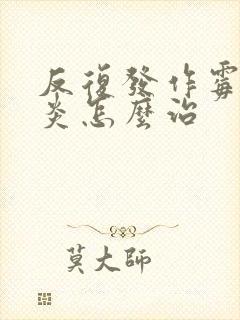 反復發作霉
炎怎麼治
莫大師